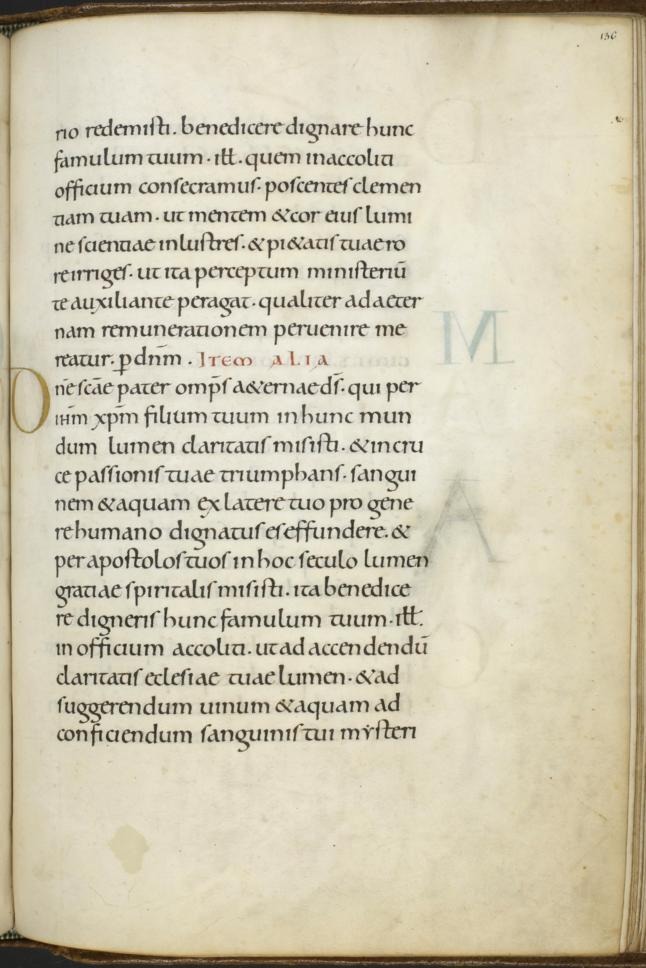 136
rio redemisti. benedicere dignare hunc
famulum tuum · ill̄ · quem inaccoliti
officium consecramus· poscentes clemen
tiam tuam · ut mentem &cor eius lumi
ne scientiae inlustres· & pi&atis tuae ro
re irriges· ut ita perceptum ministeriū
te auxiliante peragat· qualiter ad aeter
nam remunerationem peruenire me
reatur. p̄ dnm̄ . Item alia
Dne scāe pater omp̄s a&ernae ds̄· qui per
ihm̄ xpm̄ filium tuum inhunc mun
dum lumen claritatis misisti· &incru
ce passionis tuae triumphans· sangui
nem &aquam ex latere tuo pro gene
re humano dignatus es effundere· &
per apostolos tuos inhoc seculo lumen
gratiae spiritalis misisti· ita benedice
re digneris hunc famulum tuum· ill̄:
in officium accoliti· ut ad accendendū
claritatis eclesiae tuae lumen· &ad
suggerendum uinum &aquam ad
conficiendum sanguinis tui mysteri